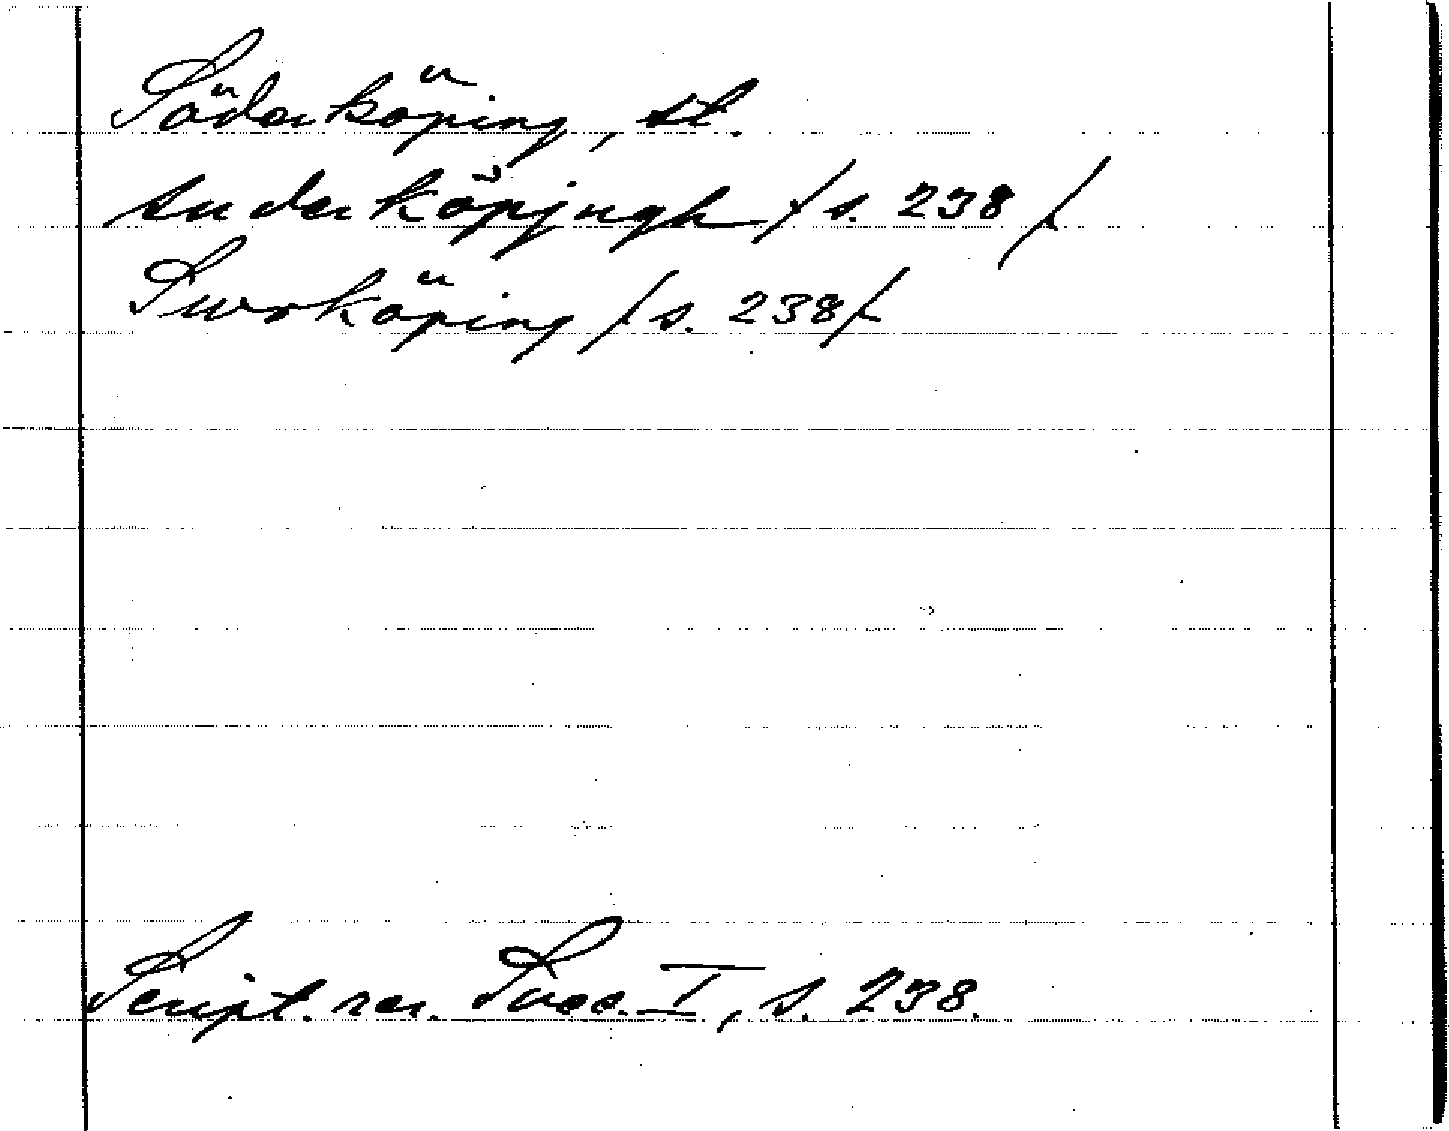 Söderköping, st.
suderköpjngh /s. 238/
Surköping /s. 238/
Script. rer. Svec. I, s. 238.